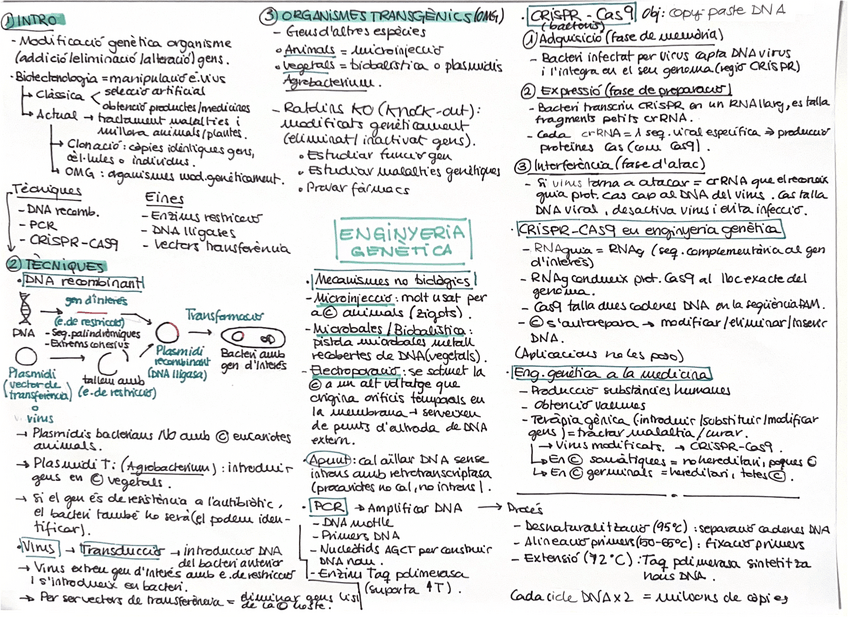 ① INTRO
- Modificació genètica organisme
(addició/eliminació/alteració) gens.
• Biotecnologia = manipulació é.vius
→ Clàssica
selecció artificial
obtenció productes/medicines
→ Actual → tractament malalties i
millora animals/plantes.
→ Clonació: còpies idèntiques gens,
cèl·lules o individus.
→ OMG: organismes mod. genèticament.
Tècniques
- DNA recomb.
- PCR
- CRISPR-CAS9
Eines
- Enzims restricció
- DNA lligases
- Vectors transferència
② TÈCNIQUES
• DNA recombinant
gen d'interès
(e.de restricció)
DNA
- Seq. palindròmiques
- Extrems cohesius
Transformació
Plasmidi
(vector de
transferència)
o
virus
tallem amb
(e.de restricció)
Plasmidi
recombinant
(DNA lligasa)
Bacteri amb
gen d'interès
→ Plasmidis bacterians /No amb © eucariotes
animals.
→ Plasmidi Ti (Agrobacterium): introduir
gens en © vegetals.
→ Si el gen és de resistència a l'antibiòtic,
el bacteri també ho serà (el podem iden-
tificar).
• Virus → Transducció → introducció DNA
del bacteri anterior
→ Virus extreu gen d'interès amb e.de restricció
i s'introdueix en bacteri.
→ Per ser vectors de transferència = eliminar gens lisi
de la © hoste.
③ ORGANISMES TRANSGÈNICS (OMG)
- Gens d'altres espècies
o Animals = microinjecció
o Vegetals = biobalística o plasmidis
Agrobacterium.
- Ratolins KO (Knock-out):
modificats genèticament
(eliminat/ inactivat gens).
o Estudiar funció gen
o Estudiar malalties genètiques
o Provar fàrmacs
ENGINYERIA
GENÈTICA
• Mecanismes no biològics
- Microinjecció: molt usat per
a © animals (zigots).
- Microbales / Biobalística:
pistola microbales metall
recobertes de DNA (vegetals).
- Electroporació: se sotmet la
© a un alt voltatge que
origina orificis temporals en
la membrana → serveixen
de punts d'entrada de DNA
extern.
• Apunt: cal aïllar DNA sense
introns amb retrotranscriptasa
(procariotes no cal, no introns).
• PCR → Amplificar DNA → Procés
- DNA motlle
- Primers DNA
- Nucleòtids AGCT per construir
DNA nou.
- Enzim Taq polimerasa
(suporta ↑T).
• CRISPR-Cas9 Obj: copy-paste DNA
(bacteris)
① Adquisició (fase de memòria)
- Bacteri infectat per virus capta DNA virus
i l'integra en el seu genoma (regió CRISPR)
② Expressió (fase de preparació)
- Bacteri transcriu CRISPR en un RNA llarg, es talla
fragments petits crRNA.
- Cada crRNA = 1 seq. viral específica → producció
proteïnes Cas (com Cas9).
③ Interferència (fase d'atac)
- Si virus torna a atacar = crRNA que el reconeix
guia prot. Cas cap al DNA del virus. Cas talla
DNA viral, desactiva virus i evita infecció.
• CRISPR-CAS9 en enginyeria genètica
- RNA guia = RNAg (seq. complementària al gen
d'interès)
- RNAg condueix prot. Cas9 al lloc exacte del
genoma.
- Cas9 talla dues cadenes DNA en la seqüència PAM.
- © s'autorepara → modificar/eliminar/inserir
DNA.
(Aplicacions no les poso)
• Eng. genètica a la medicina
- Producció substàncies humanes
- Obtenció vacunes
- Teràpia gènica (introduir/substituir/modificar
gens) = tractar malaltia/curar.
→ Virus modificats. → CRISPR-Cas9.
→ En © somàtiques = no hereditari, poques ©
→ En © germinals = hereditari, totes ©.
- Desnaturalització (95ºC): separació cadenes DNA
- Alineació primers (50-65ºC): fixació primers
- Extensió (72ºC): Taq polimerasa sintetitza
nous DNA.
Cada cicle DNA x2 = milions de còpies